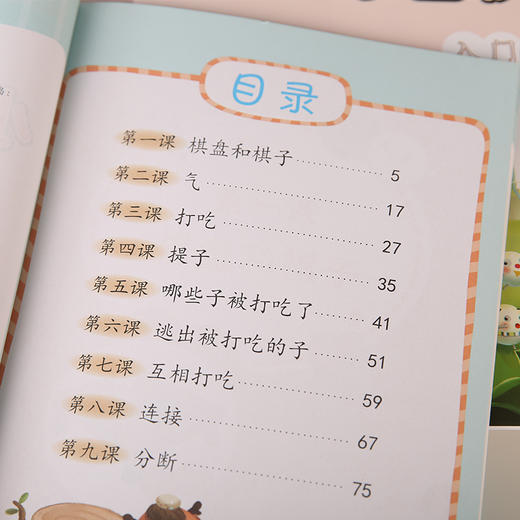 目录
第一课 棋盘和棋子 5
第二课 气 17
第三课 打吃 27
第四课 提子 35
第五课 哪些子被打吃了 41
第六课 逃出被打吃的子 51
第七课 互相打吃 59
第八课 连接 67
第九课 分断 75